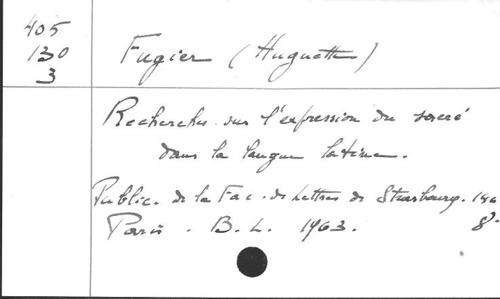 405
130
3
Fugier (Huguette)
Recherches sur l'expression du sacré
dans la langue latine.
Public. de la Fac. de Lettres de Strasbourg. 146
Paris. B.L. 1963. 8°.